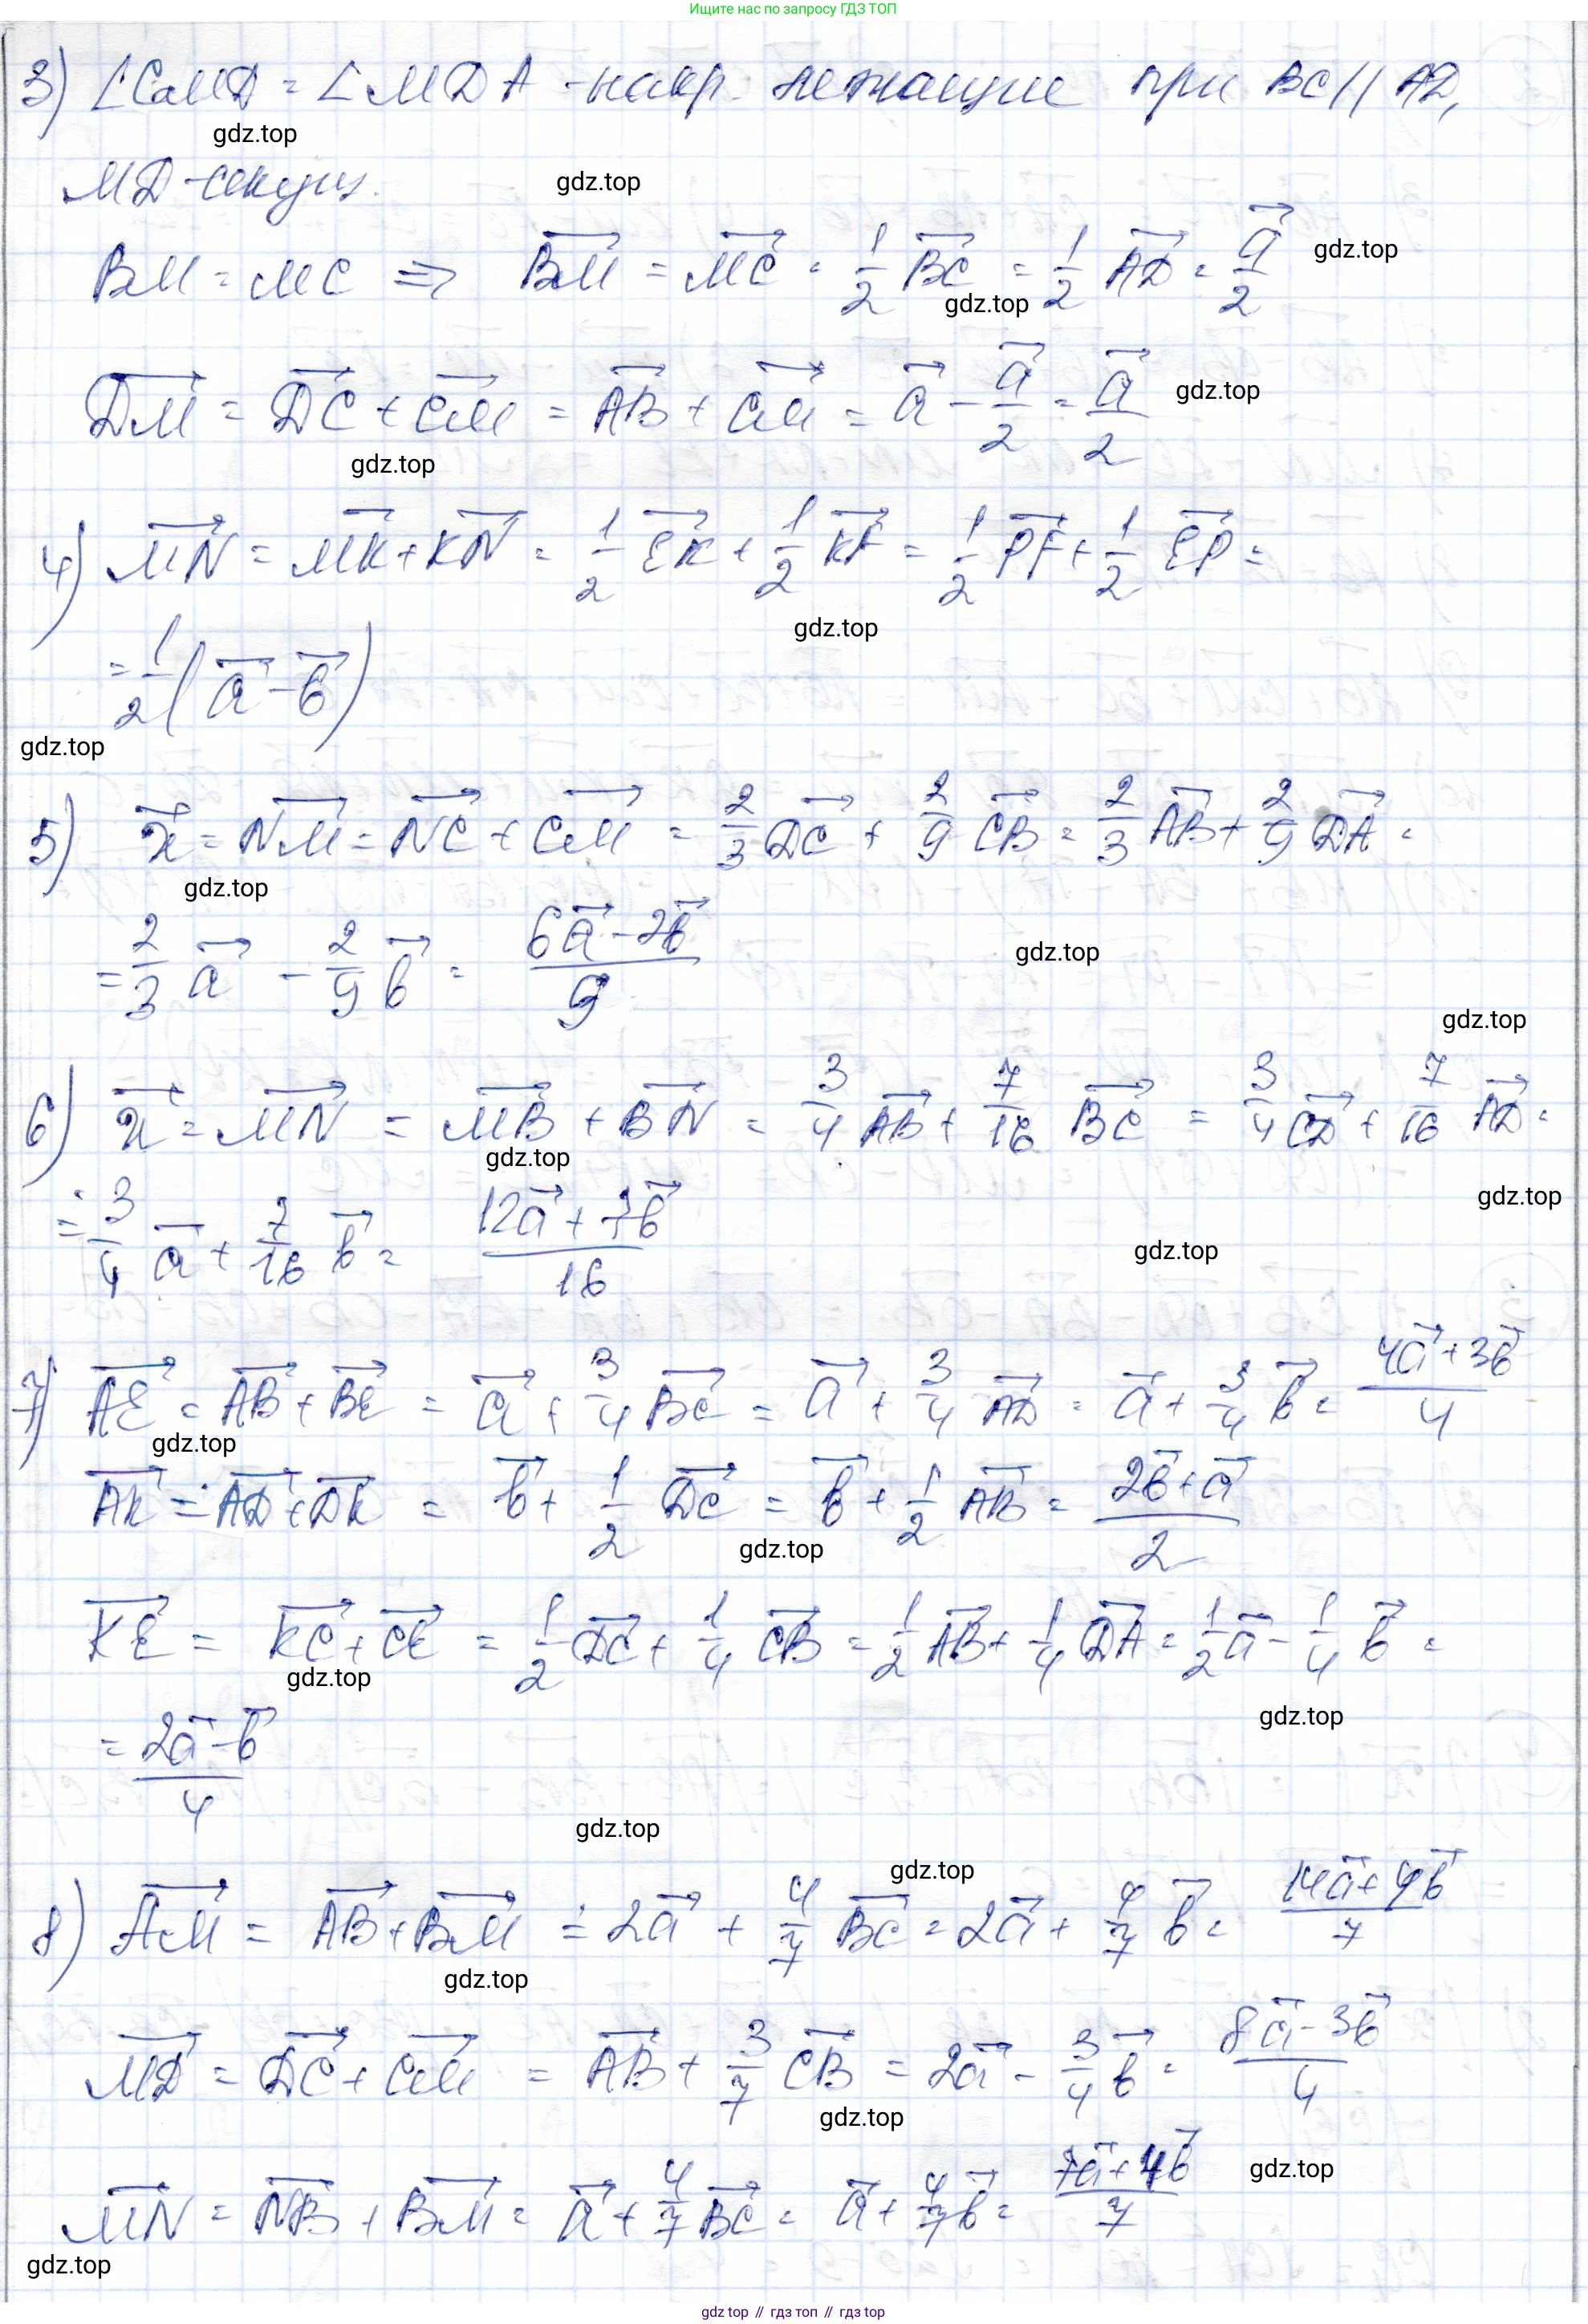 Ищите нас по запросу ГДЗ ТОП
3) ∠CMD = ∠MDA - накр. лежащие при BC || AD,
gdz.top
MD - секущ.
gdz.top
BM = MC ⇒ BM→ = MC→ = 1/2 BC→ = 1/2 AD→ = a→/2
gdz.top
gdz.top
DM→ = DC→ + CM→ = AB→ + CM→ = a→ - a→/2 = a→/2
gdz.top
gdz.top
4) MN→ = MK→ + KN→ = 1/2 EK→ + 1/2 KF→ = 1/2 PF→ + 1/2 EP→ =
gdz.top
= 1/2 (a→ - b→)
gdz.top
5) x→ = NM→ = NC→ + CM→ = 2/3 DC→ + 2/9 CB→ = 2/3 AB→ + 2/9 DA→ =
gdz.top
= 2/3 a→ - 2/9 b→ = (6a→ - 2b→)/9
gdz.top
gdz.top
6) x→ = MN→ = MB→ + BN→ = 3/4 AB→ + 7/16 BC→ = 3/4 CD→ + 7/16 AD→ =
gdz.top
gdz.top
= 3/4 a→ + 7/16 b→ = (12a→ + 7b→)/16
gdz.top
7) AE→ = AB→ + BE→ = a→ + 3/4 BC→ = a→ + 3/4 AD→ = a→ + 3/4 b→ = (4a→ + 3b→)/4
gdz.top
AK→ = AD→ + DK→ = b→ + 1/2 DC→ = b→ + 1/2 AB→ = (2b→ + a→)/2
gdz.top
KE→ = KC→ + CE→ = 1/2 DC→ + 1/4 CB→ = 1/2 AB→ + 1/4 DA→ = 1/2 a→ - 1/4 b→ =
gdz.top
gdz.top
= (2a→ - b→)/4
gdz.top
gdz.top
8) AM→ = AB→ + BM→ = 2a→ + 4/7 BC→ = 2a→ + 4/7 b→ = (14a→ + 4b→)/7
gdz.top
MD→ = DC→ + CM→ = AB→ + 3/7 CB→ = 2a→ - 3/4 b→ = (8a→ - 3b→)/4
gdz.top
MN→ = NB→ + BM→ = a→ + 4/7 BC→ = a→ + 4/7 b→ = (7a→ + 4b→)/7
gdz.top
gdz.top
gdz top // гдз топ // gdz.top